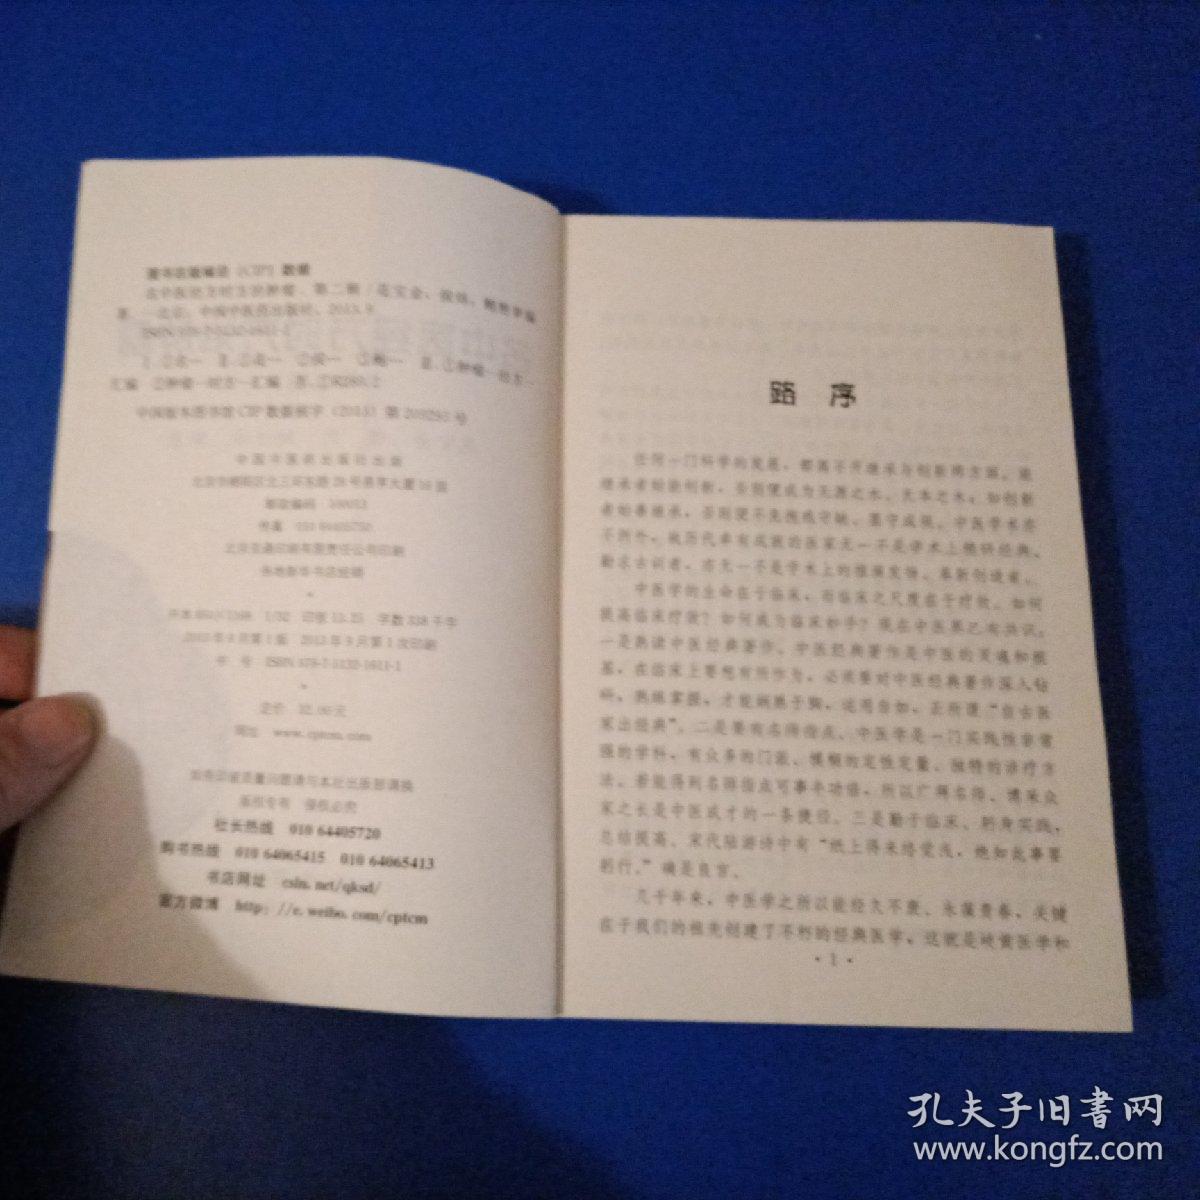 图书在版编目（CIP）数据
名中医经方时方治肿瘤．第二辑／花宝金，侯炜，鲍艳举编
著．—北京：中国中医药出版社，2013.9
ISBN 978-7-5132-1611-1
中国版本图书馆CIP数据核字（2013）第209293号
中国中医药出版社出版
北京市朝阳区北三环东路28号易亨大厦16层
邮政编码 100013
传真 010 64405750
北京 印刷有限责任公司印刷
各地新华书店经销
开本 850×1168 1/32 印张 13.25 字数 338千字
2013年9月第1版 2013年9月第1次印刷
书 号 ISBN 978-7-5132-1611-1
定价 32.00元
网址 www.cptcm.com
如有印装质量问题请与本社出版部调换
版权专有 侵权必究
社长热线 010 64405720
购书热线 010 64065415 010 64065413
书店网址 csln.net/qksd/
官方微博 http://e.weibo.com/cptcm
路 序
任何一门科学的发展，都离不开继承与创新两方面。能
继承者始能创新，否则便成为无源之水、无本之木；如创新
者始善继承，否则便不免抱残守缺、墨守成规。中医学术亦
不例外，纵历代卓有成就的医家无一不是学术上精研经典、
勤求古训者，亦无一不是学术上的推陈发扬、革新创造者。
中医学的生命在于临床，而临床之尺度在于疗效。如何
提高临床疗效？如何成为临床妙手？现在中医界已有共识。
一是熟读中医经典著作。中医经典著作是中医的灵魂和根
基，在临床上要想有所作为，必须要对中医经典著作深入钻
研，熟练掌握，才能娴熟于胸，运用自如，正所谓“自古医
家出经典”。二是要有名师指点。中医学是一门实践性非常
强的学科，有众多的门派、模糊的定性定量、独特的诊疗方
法，若能得到名师指点可事半功倍。所以广拜名师、博采众
家之长是中医成才的一条捷径。三是勤于临床、躬身实践，
总结提高。宋代陆游诗中有“纸上得来终觉浅，绝知此事要
躬行。”确是良言。
几千年来，中医学之所以能经久不衰、永葆青春，关键
在于我们的祖先创建了不朽的经典医学，这就是岐黄医学和
· 1 ·
孔夫子旧書网
www.kongfz.com